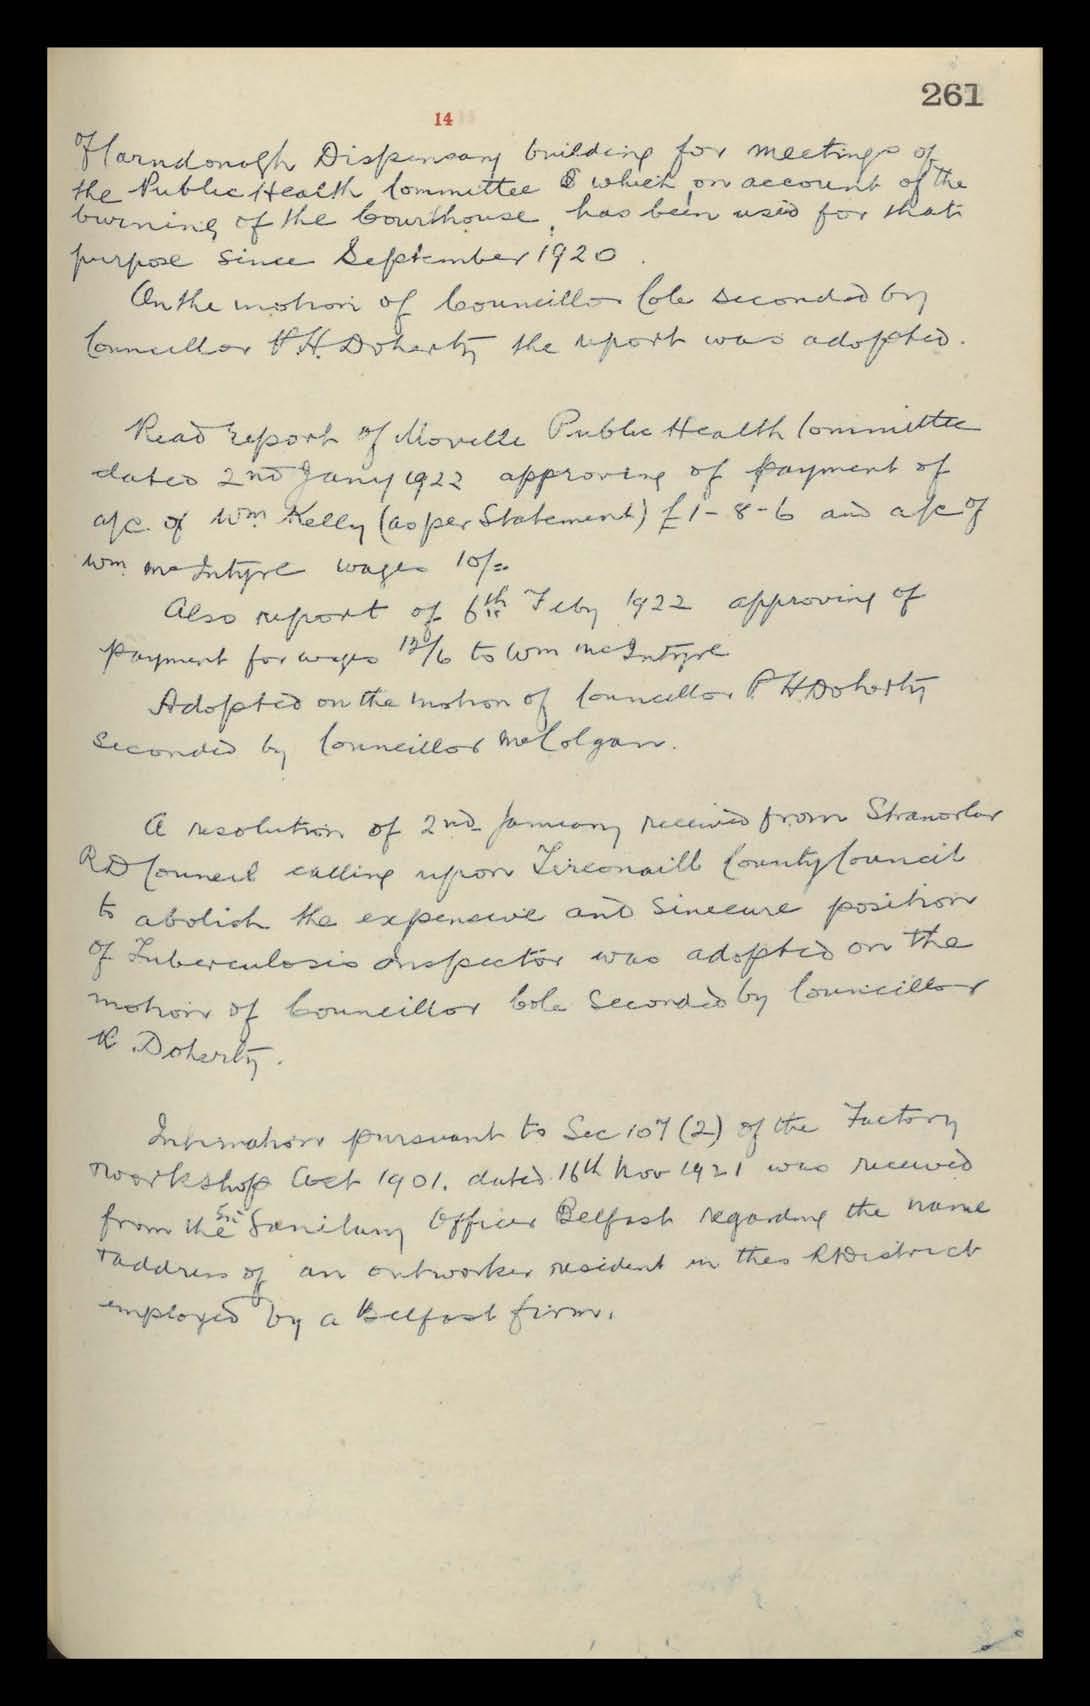 261
14
of Carndonagh Dispensary building for meetings of
the Public Health Committee & which on account of the
burning of the Courthouse, has been used for that
purpose since September 1920.
On the motion of Councillor Cole seconded by
Councillor P.H. Doherty the report was adopted.
Read report of Moville Public Health Committee
dated 2nd Jany 1922 approving of payment of
a/c. of Wm. Kelly (as per Statement) £1-8-6 and a/c of
Wm. McIntyre wages 10/=
Also report of 6th Feby 1922 approving of
payment for wages 12/6 to Wm McIntyre
Adopted on the motion of Councillor P.H. Doherty
seconded by Councillor McColgan.
A resolution of 2nd January received from Stranorlar
RD Council calling upon Tirconaill County Council
to abolish the expensive and sinecure position
of Tuberculosis Inspector was adopted on the
motion of Councillor Cole seconded by Councillor
Doherty.
Intimation pursuant to Sec 107 (2) of the Factory
+ Workshop Act 1901. dated 16th Nov 1921 was received
from the Ex. Sanitary Officer Belfast regarding the name
+ address of an outworker resident in this R District
employed by a Belfast firm.